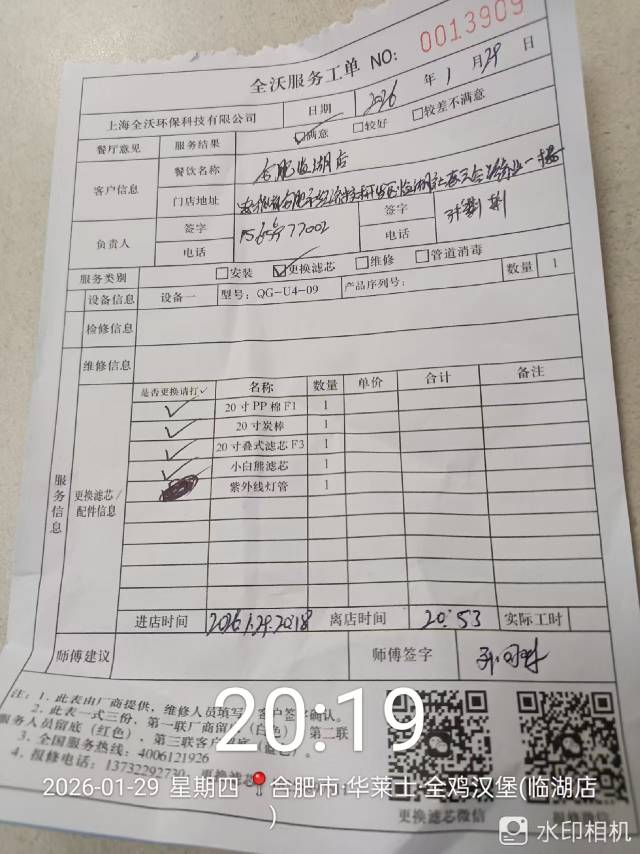 全沃服务工单 NO: 0013909
上海全沃环保科技有限公司 日期 2026 年 1 月 29 日
餐厅意见 服务结果 ☑满意 □较好 □较差不满意
客户信息 餐饮名称 合肥临湖店
门店地址
负责人 签字 签字
电话 电话
服务类别 □安装 ☑更换滤芯 □维修 □管道消毒
设备信息 设备一 型号: QG-U4-09 产品序列号: 数量 1
检修信息
维修信息
服务信息
更换滤芯/配件信息
是否更换请打✓ 名称 数量 单价 合计 备注
✓ 20寸PP棉F1 1
✓ 20寸炭棒 1
✓ 20寸叠式滤芯F3 1
✓ 小白熊滤芯 1
紫外线灯管 1
进店时间 2026.1.29.20:18 离店时间 20:53 实际工时
师傅建议 师傅签字
注: 1. 此表由厂商提供, 维修人员填写, 客户签字确认。
2. 此表一式三份, 第一联厂商留底(白色) 第二联
服务人员留底(红色), 第三联客户
3. 全国服务热线: 4006121926
4. 报修电话: 13732292730
更换滤芯微信
20:19
2026-01-29 星期四 合肥市·华莱士·全鸡汉堡(临湖店
)
水印相机